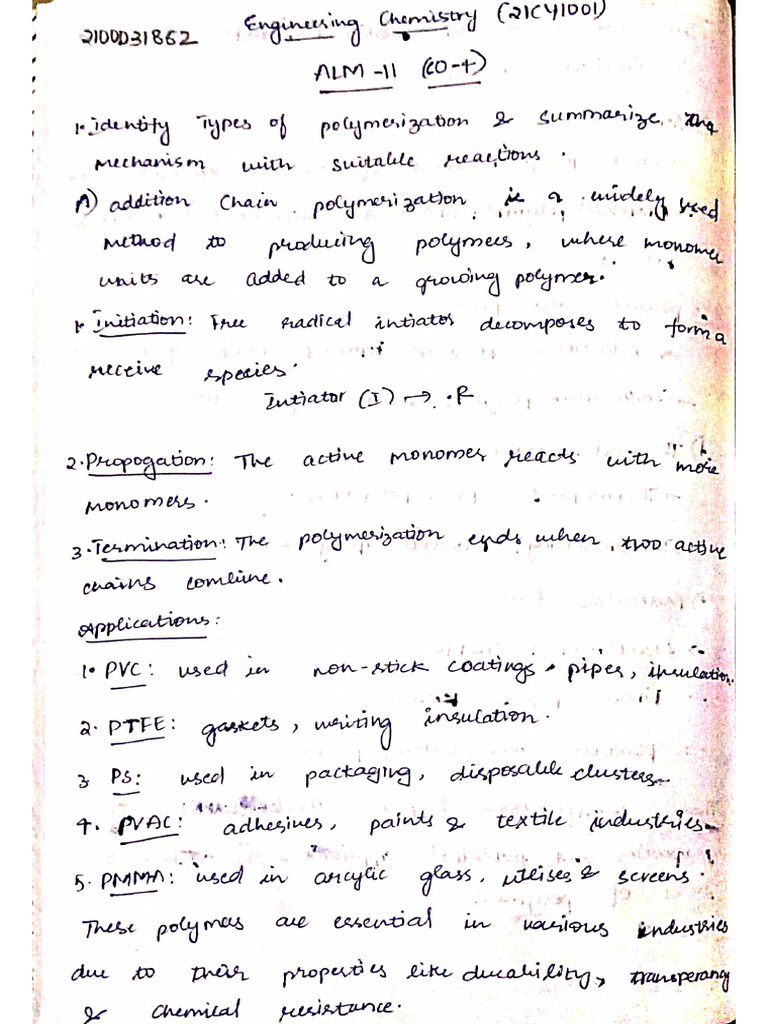 2100D31862 Engineering Chemistry (21CY1001)
ALM-11 (CO-4)
1. Identify Types of polymerization & summarize the
mechanism with suitable reactions.
A) addition chain polymerization is a widely used
method to producing polymers, where monomer
units are added to a growing polymer.
1. Initiation: Free radical intiator decomposes to form a
recetive species.
Intiator (I) → .R
2. Propogation: The active monomer reacts with more
monomers.
3. Termination: The polymerization ends when two active
chains combine.
Applications:
1. PVC: used in non-stick coatings. pipes, insulation.
2. PTFE: gaskets, writing insulation.
3 PS: used in packaging, disposable clusters.
4. PVAC: adhesives, paints & textile industries
5. PMMA: used in arcylic glass, & screens.
These polymers are essential in various industries
due to their properties like ducability, transperancy
& chemical resistance.